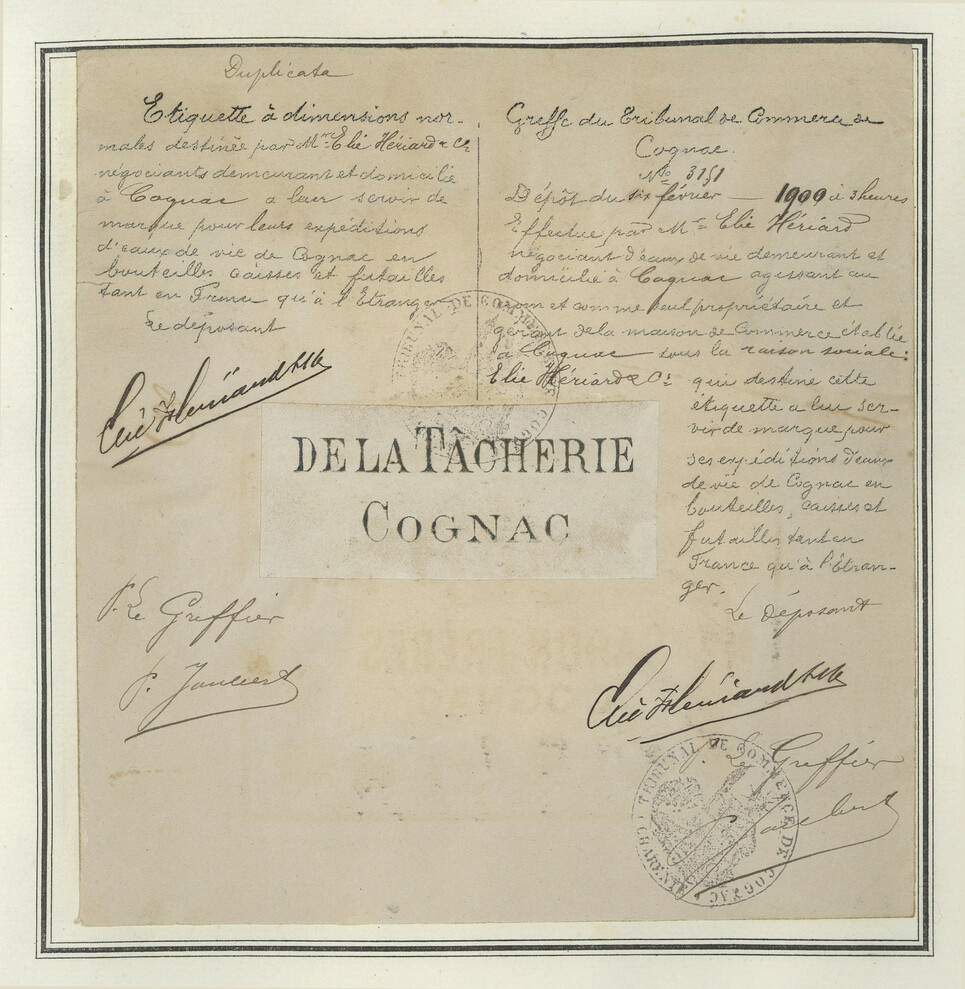 Duplicata
Etiquette à dimensions nor-
males destinée par Mr Elie Hériard & Cie
négociants demeurant et domicilié
à Cognac a leur servir de
marque pour leurs expéditions
d'eaux de vie de Cognac en
bouteilles caisses et futailles
tant en France qu'à l'Etranger
Le déposant
Elie Hériard & Cie
Greffe du Tribunal de Commerce de
Cognac.
No 3151
Dépôt du six février — 1900 à 3 heures
Effectué par Mr Elie Hériard
négociant d'eaux de vie demeurant et
domicilié à Cognac agissant au
nom et comme seul propriétaire et
gérant de la maison de Commerce établie
à Cognac sous la raison sociale:
Elie Hériard & Cie qui destine cette
étiquette a lui ser-
vir de marque pour
ses expéditions d'eaux
de vie de Cognac en
bouteilles, caisses et
futailles tant en
France qu'à l'Etran-
ger.
Le déposant
Elie Hériard & Cie
TRIBUNAL DE COMMERCE DE COGNAC
DE LA TÂCHERIE
COGNAC
P. Le Greffier
P. Le Greffier
TRIBUNAL DE COMMERCE DE COGNAC